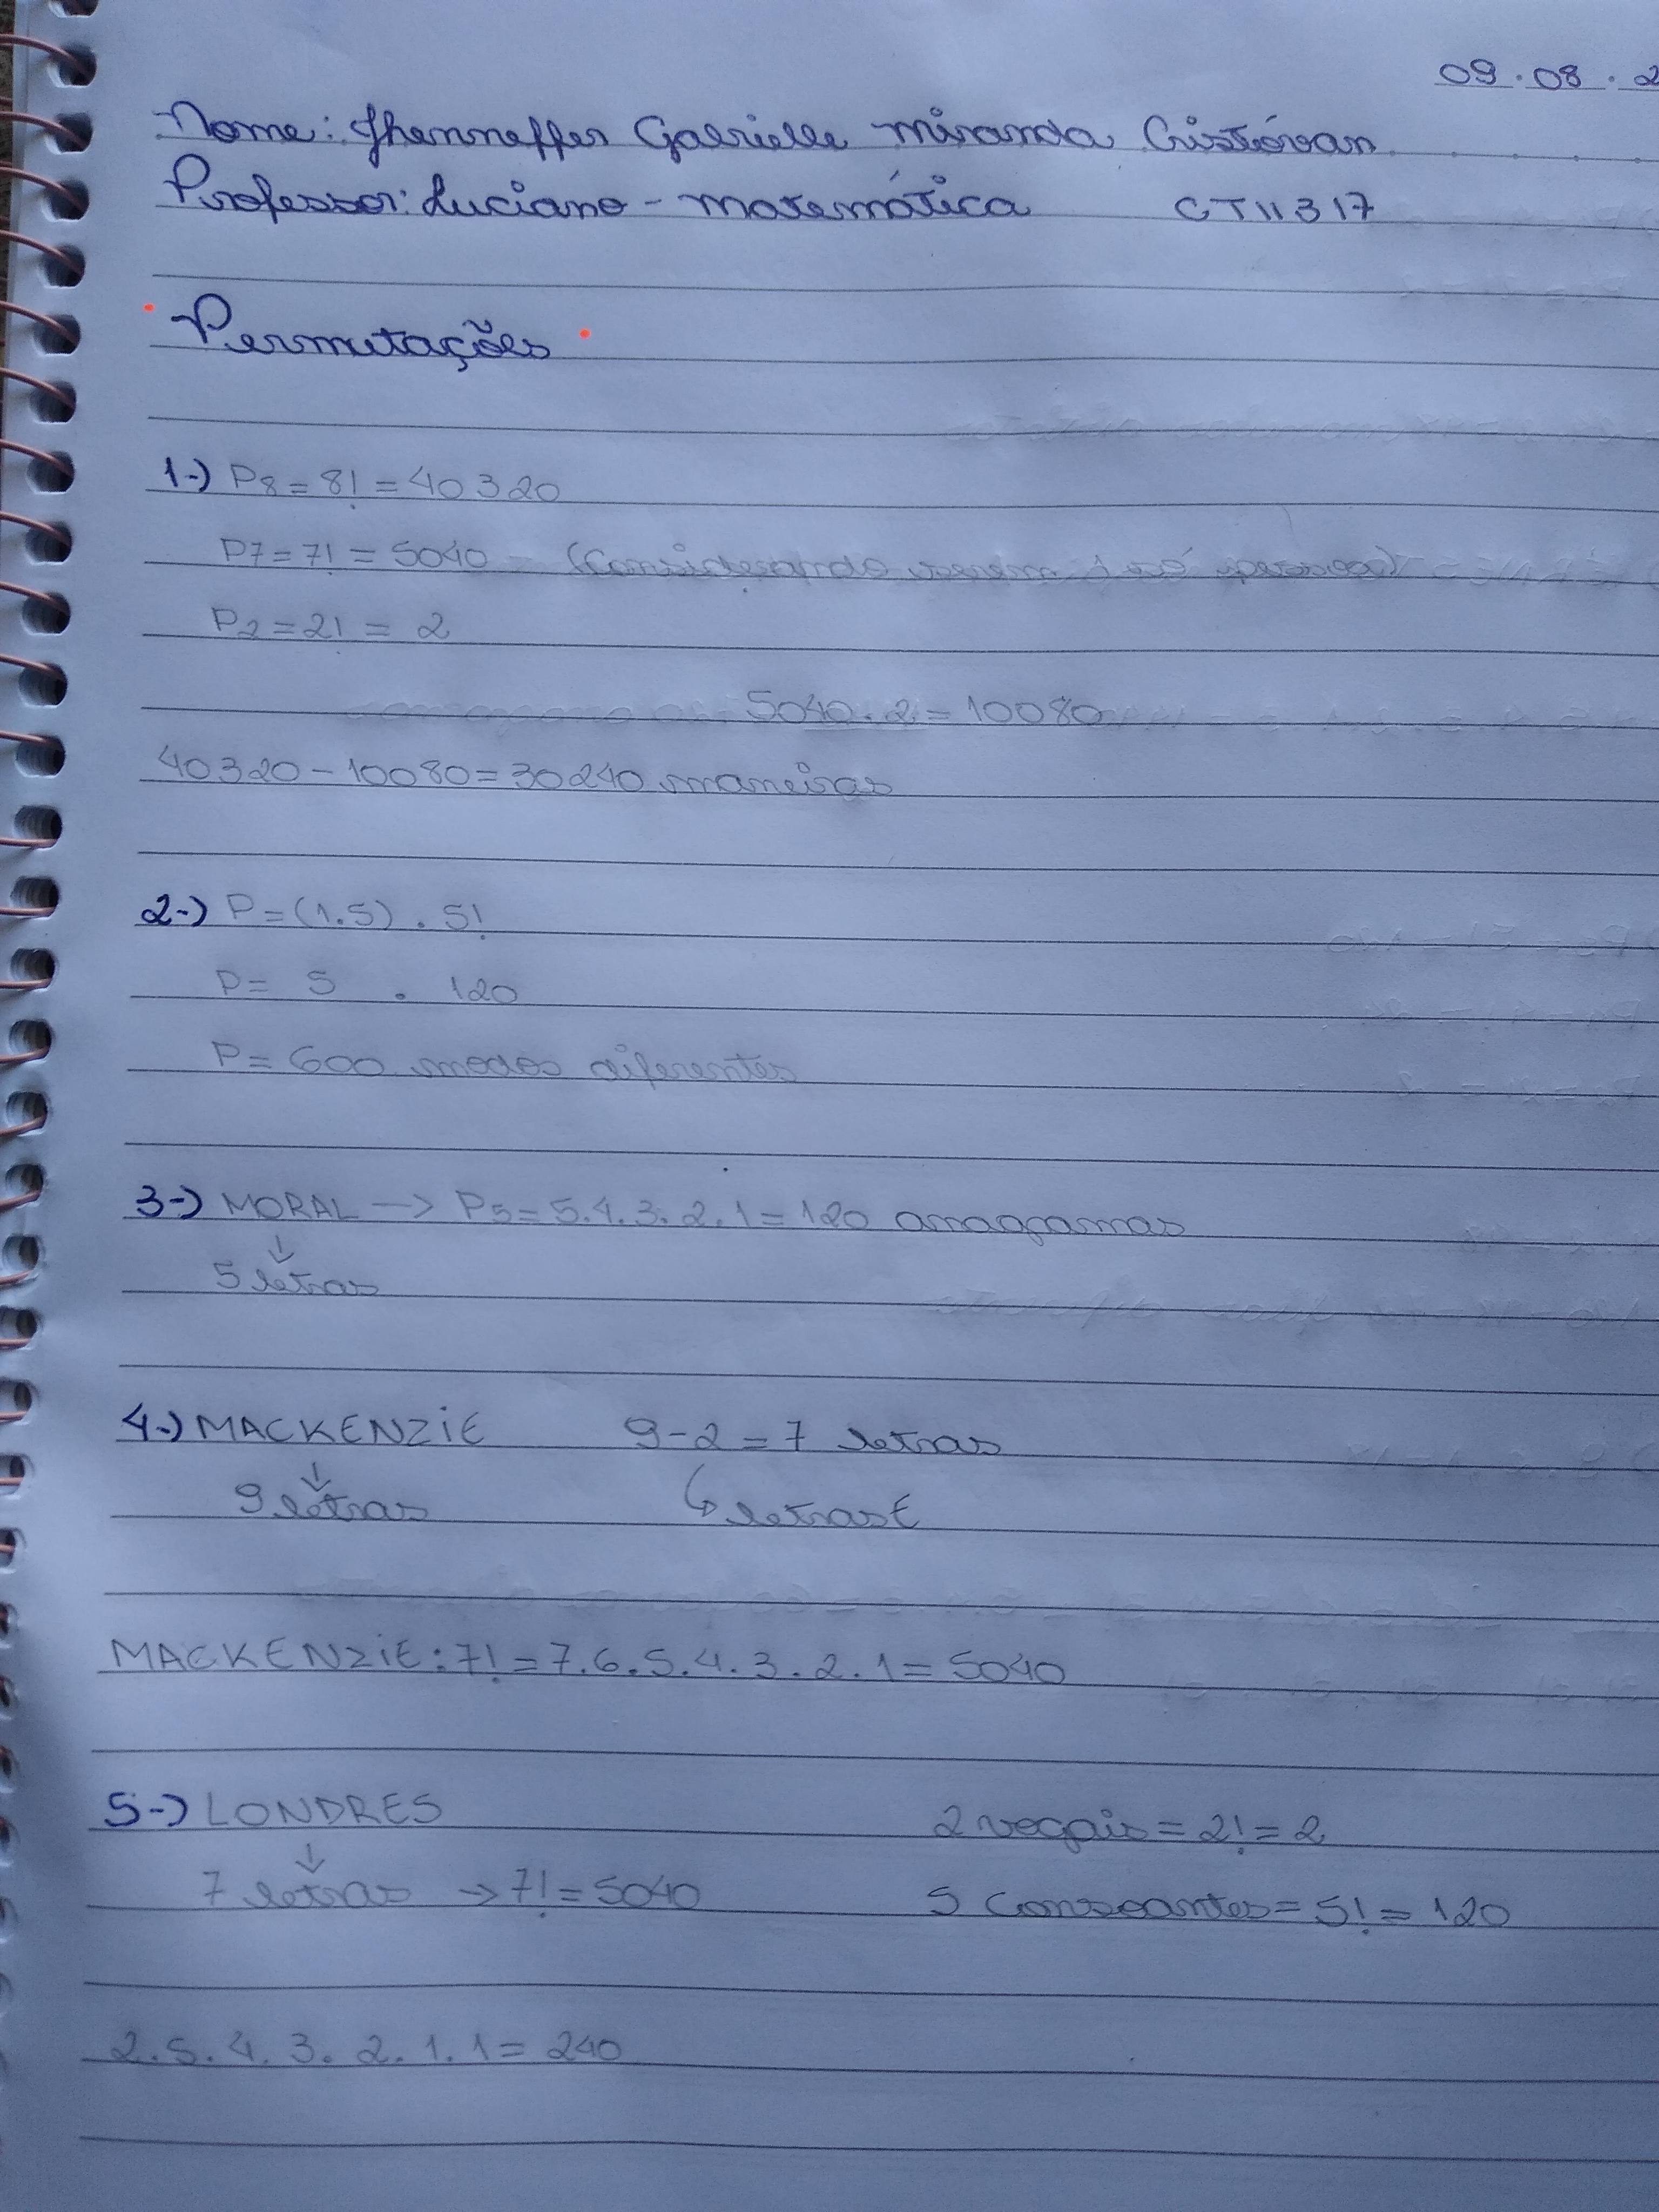 09.08.2
Nome: Jhenneffer Gabrielle Miranda Cristóvan
Professor: Luciano - Matemática CTII 317
Permutações
1-) P8 = 8! = 40320
P7 = 7! = 5040 - (Considerando serem 1 só pessoa)
P2 = 2! = 2
5040.2 = 10080
40320 - 10080 = 30240 maneiras
2-) P = (1.5) . 5!
P = 5 . 120
P = 600 modos diferentes
3-) MORAL → P5 = 5.4.3.2.1 = 120 anagramas
↓
5 letras
4-) MACKENZIE 9 - 2 = 7 letras
↓ ↳ letras E
9 letras
MACKENZIE: 7! = 7.6.5.4.3.2.1 = 5040
5-) LONDRES 2 vogais = 2! = 2
↓
7 letras → 7! = 5040 5 Consoantes = 5! = 120
2.5.4.3.2.1.1 = 240